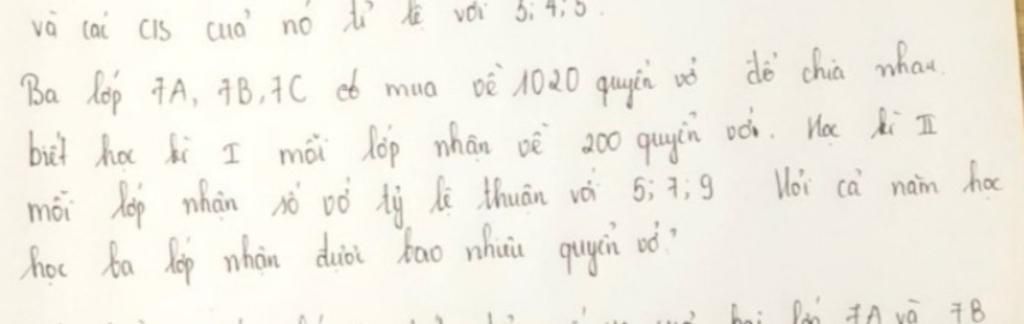 và các CIS cuả nó tỉ lệ với 5; 4; 5.
Ba lớp 7A, 7B, 7C có mua về 1020 quyển vở để chia nhau.
biết học kì I mỗi lớp nhận về 200 quyển vởi. Học kì II
mỗi lớp nhận số vở tỷ lệ thuận với 5; 7; 9 Hỏi cả năm học
học ba lớp nhận dược bao nhiêu quyển vở?
hai lớp 7A và 7B